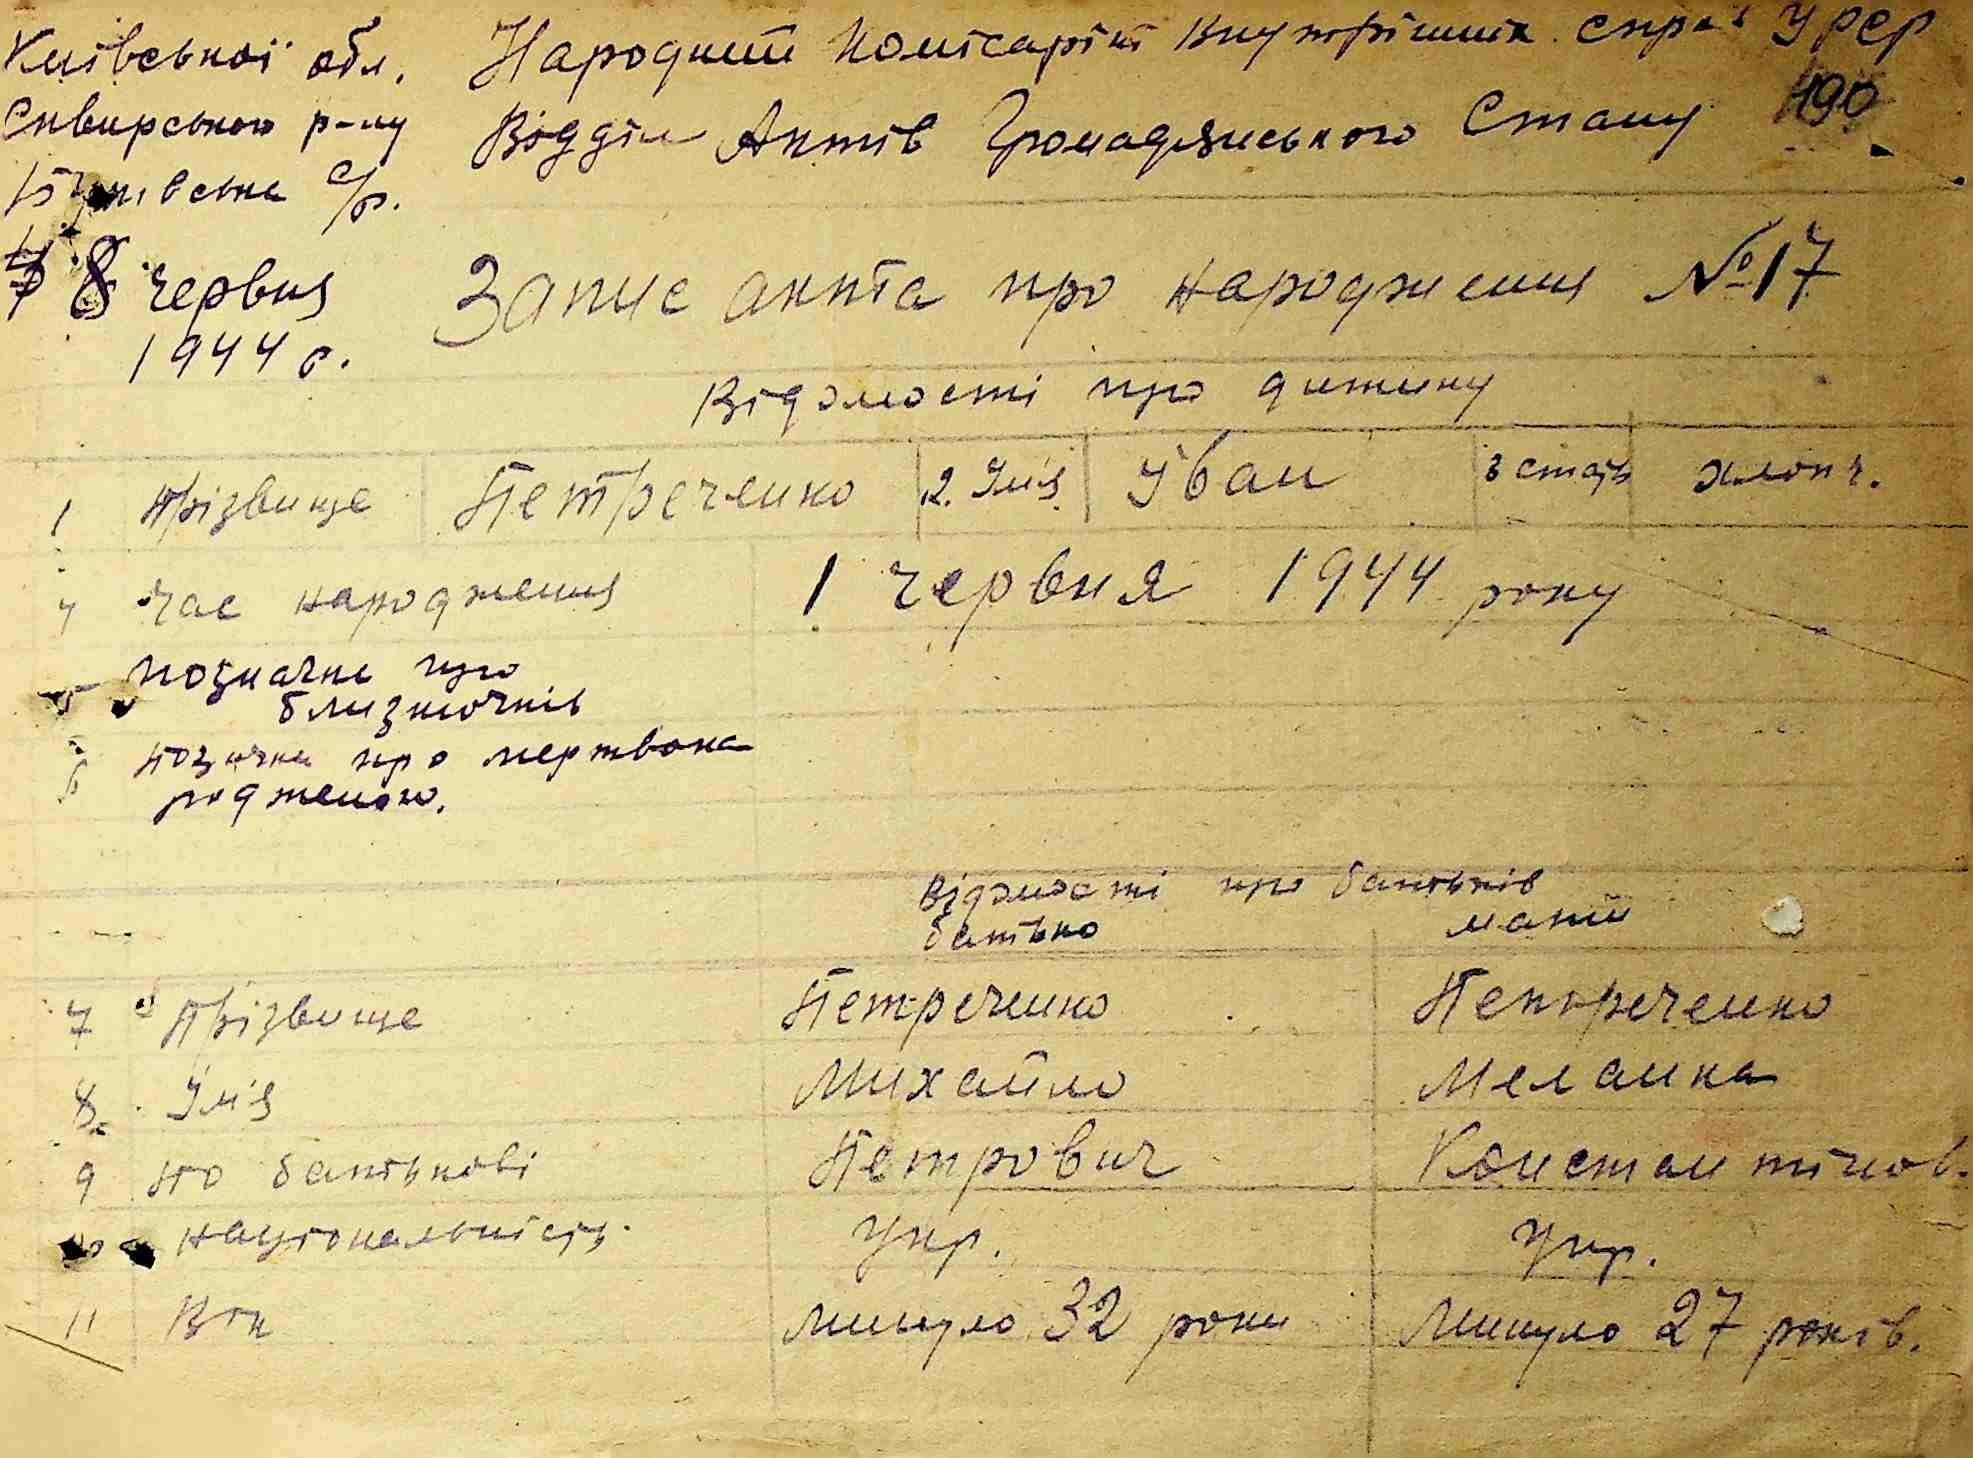 Київської обл.
Народний Комісаріат Внутрішніх справ УРСР
Сквирського р-ну
Відділ Актів Громадянського Стану
190
с/р.
8 червня
1944 р.
Запис акта про народження №17
Відомості про дитину
1 Прізвище Петреченко 2. Ім'я Іван 3 стать хлопч.
4 Час народження 1 червня 1944 року
5 позначка про
близнючків
6 позначка про мертвона
родженого.
Відомості про батьків
батько мати
7 Прізвище Петреченко Петреченко
8. Ім'я Михайло Меланка
9 по батькові Петрович Константінов.
10 національність Укр. Укр.
11 Вік минуло 32 роки Минуло 27 років.